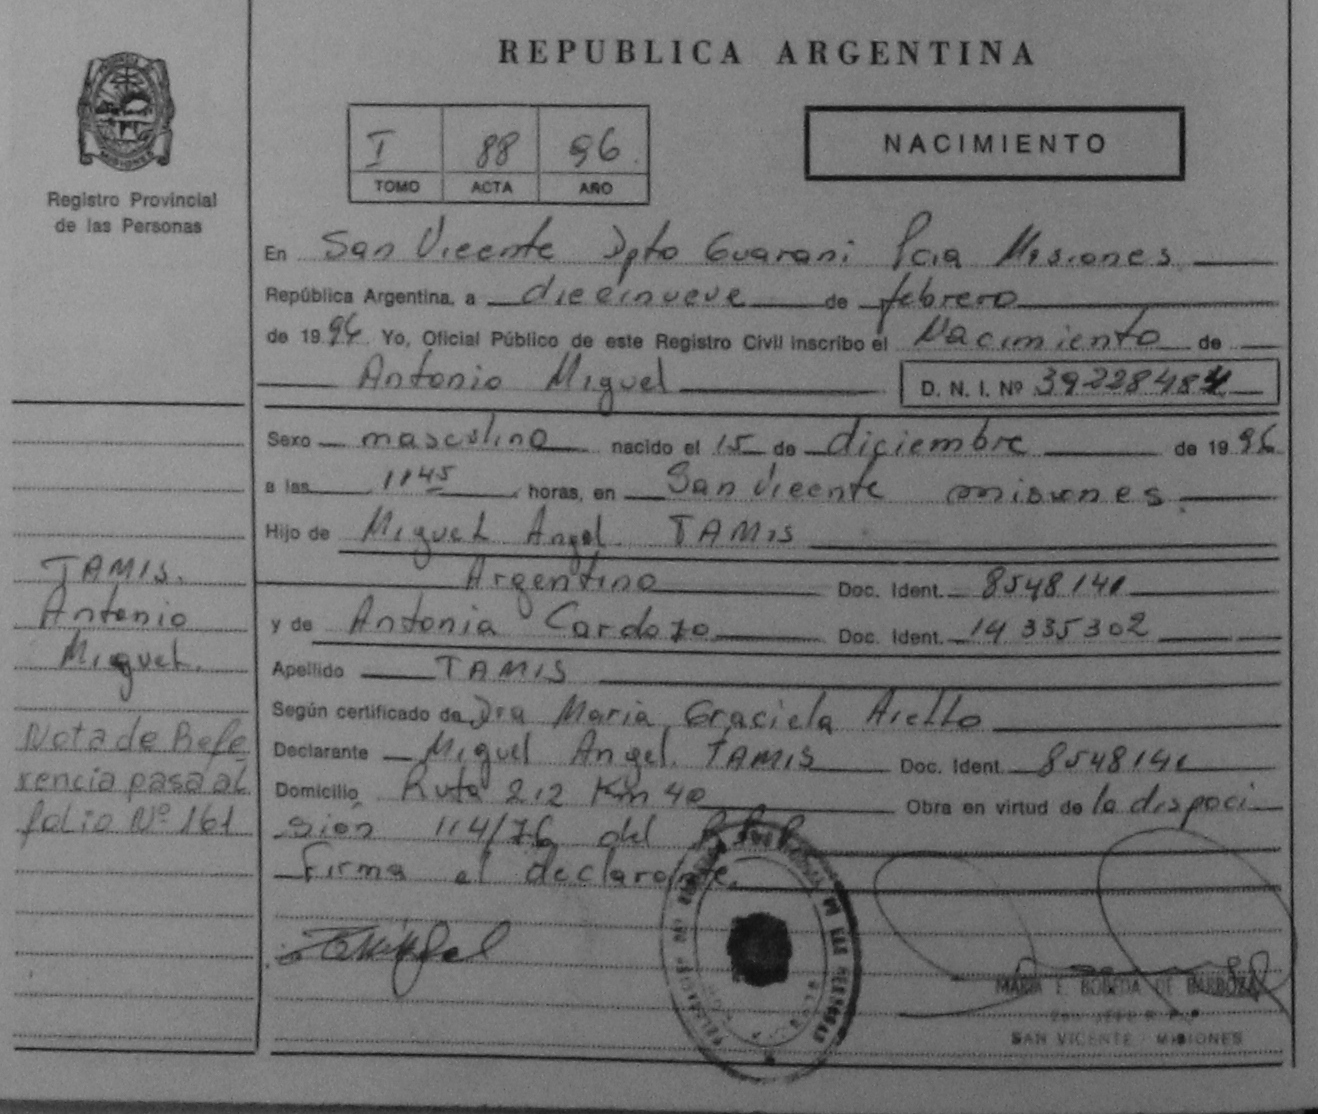 REPUBLICA ARGENTINA
MISIONES
Registro Provincial
de las Personas
I 88 96
TOMO ACTA AÑO
NACIMIENTO
En San Vicente Dpto Guarani Pcia Misiones
República Argentina, a diecinueve de febrero
de 1996 Yo, Oficial Público de este Registro Civil inscribo el Nacimiento de
Antonio Miguel D. N. I. Nº 39228484
Sexo masculino nacido el 15 de diciembre de 19
a las 1145 horas, en San Vicente misiones.
Hijo de Miguel Angel TAMIS
Argentino Doc. Ident. 8548141
y de Antonia Cardozo Doc. Ident. 14 335302
Apellido TAMIS
Según certificado de Dra Maria Graciela Aiello
Declarante Miguel Angel TAMIS Doc. Ident. 8548141
Domicilio Ruta 212 Km 40 Obra en virtud de la dispoci
sion 114/76 del RPP
Firma el declarante.
TAMIS.
Antonio
Miguel.
Nota de Refe
rencia pasa al
folio Nº 161
MARIA E. BOBEDA DE BARBOZA
SAN VICENTE MISIONES